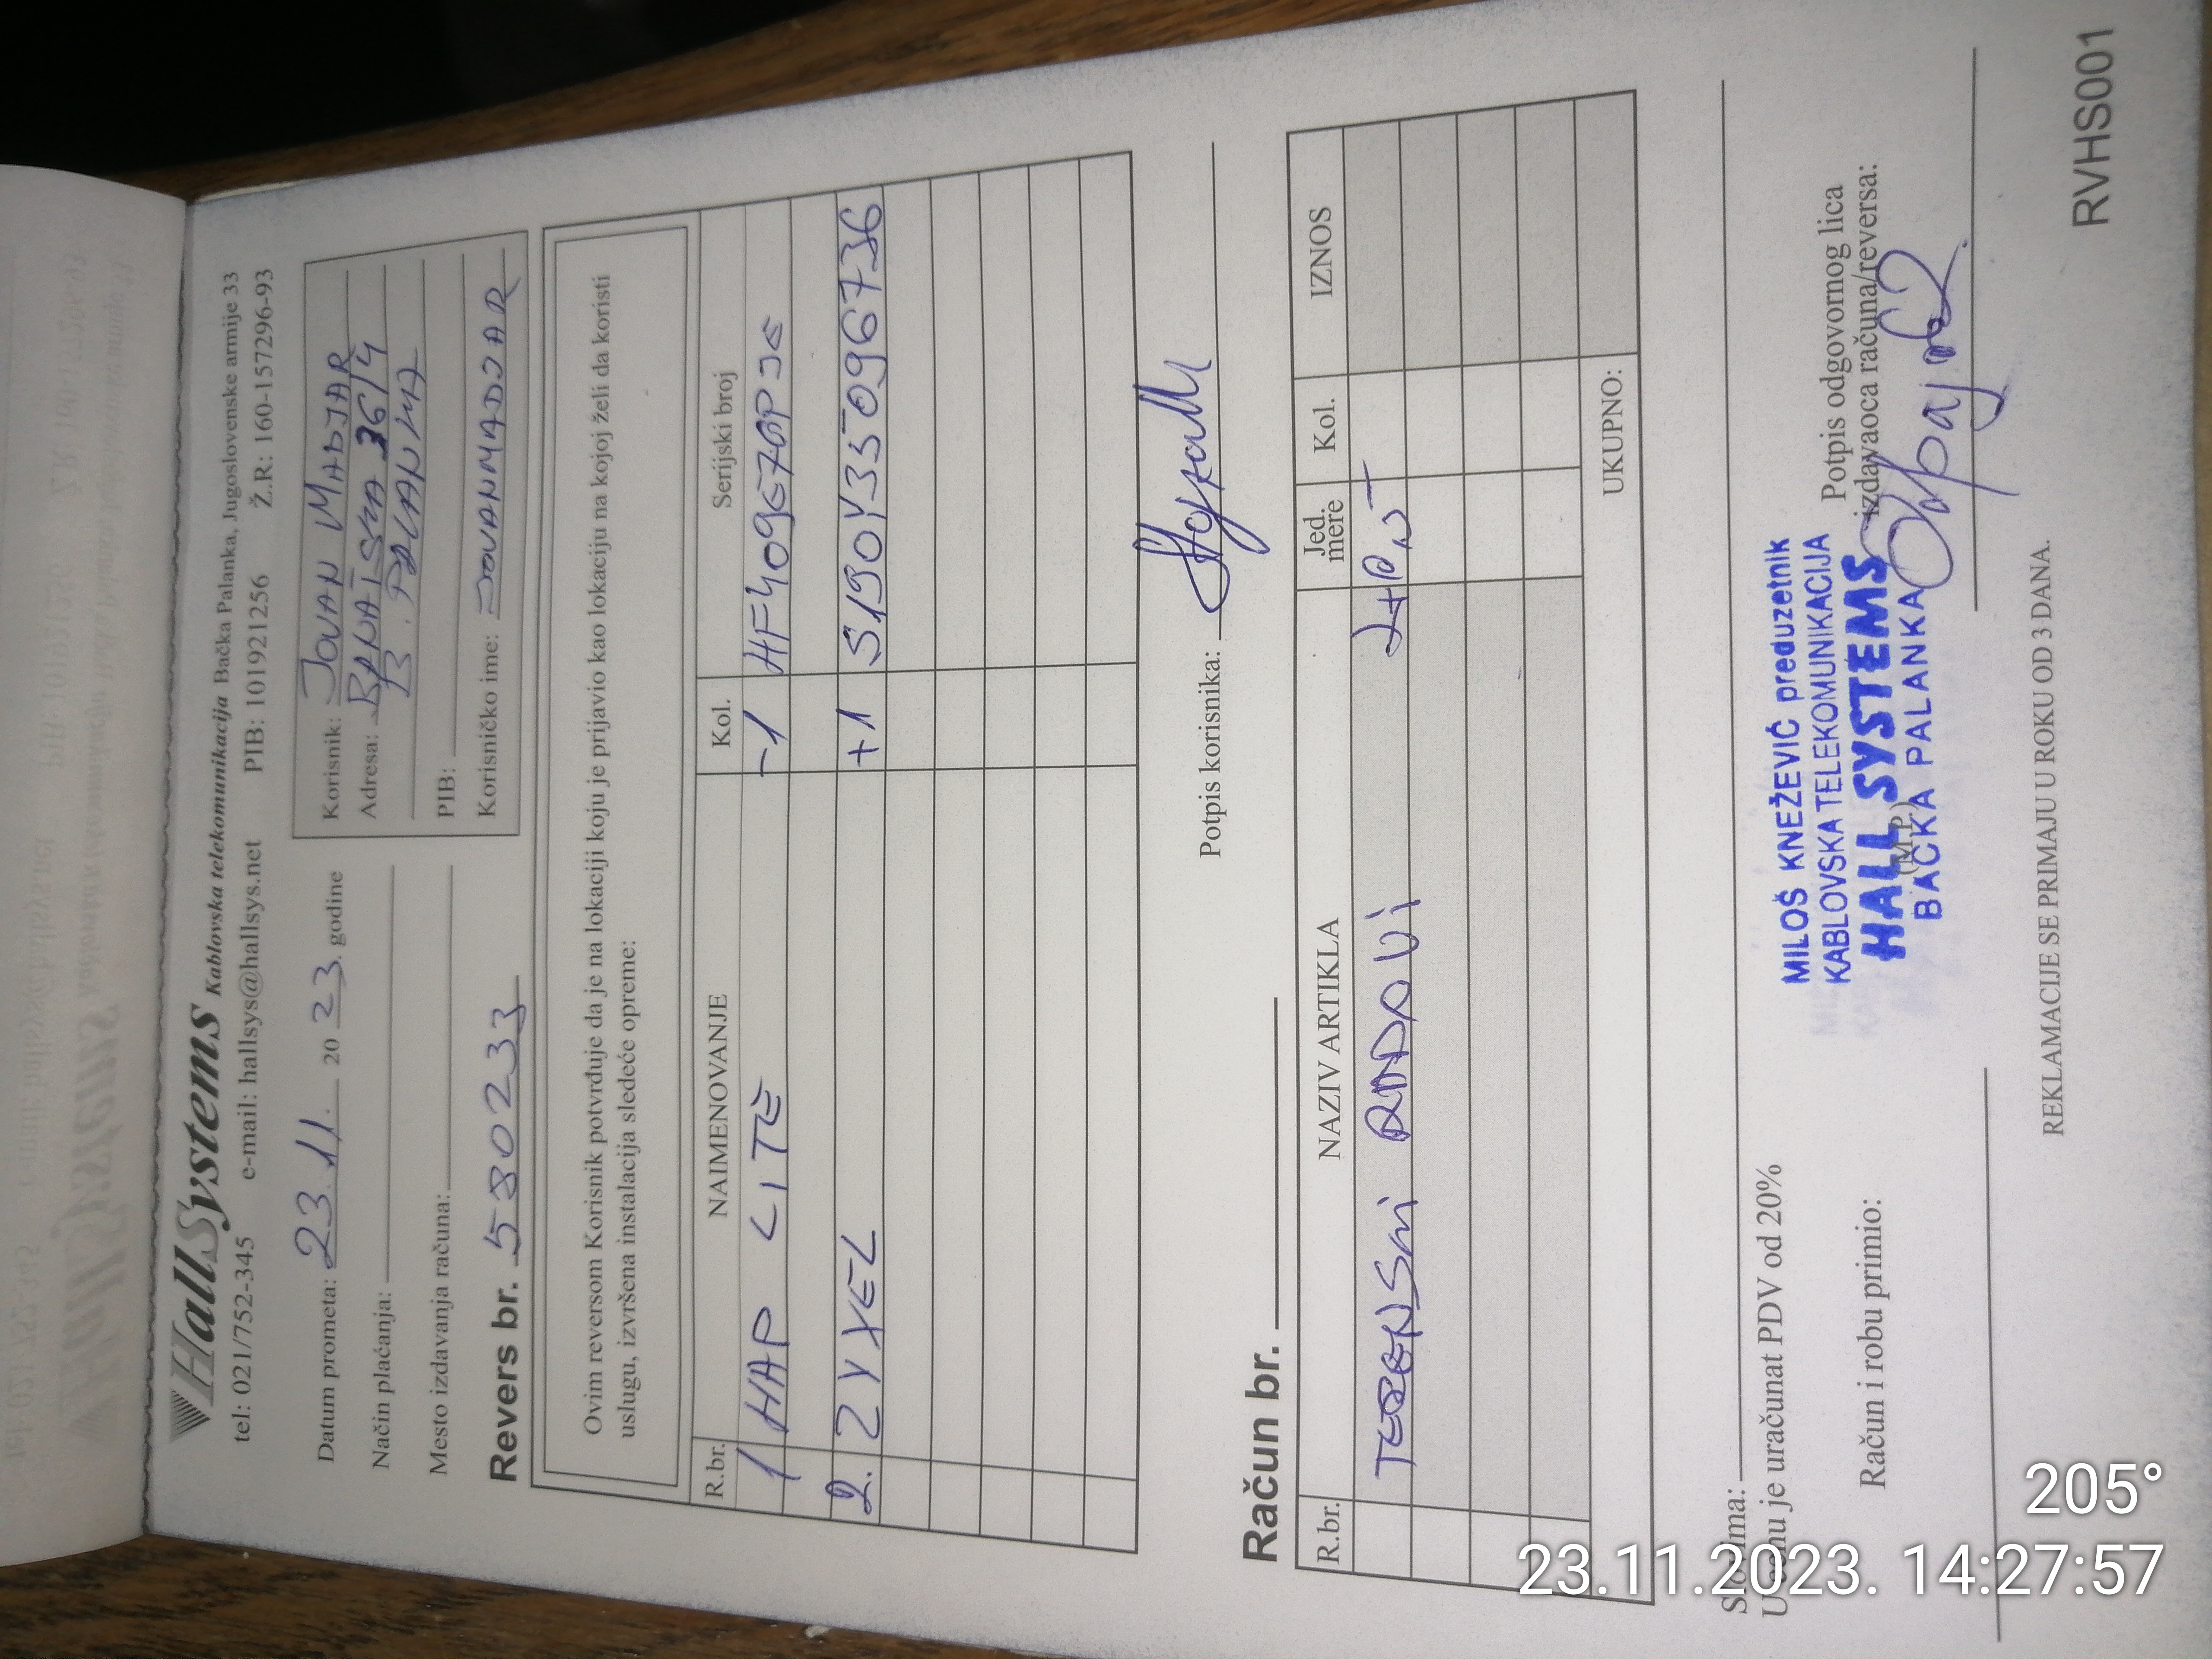 HallSystems Kablovska telekomunikacija Bačka Palanka, Jugoslovenske armije 33
tel: 021/752-345 e-mail: hallsys@hallsys.net PIB: 101921256 Ž.R: 160-157296-93
Datum prometa: 23.11. 2023. godine
Način plaćanja:
Mesto izdavanja računa:
Korisnik: JOVAN MADJAR
Adresa: 36/4
B. PALANKA
PIB:
Korisničko ime: JOVANMADJAR
Revers br. 580233
Ovim reversom Korisnik potvrđuje da je na lokaciji koju je prijavio kao lokaciju na kojoj želi da koristi
uslugu, izvršena instalacija sledeće opreme:
R.br. NAIMENOVANJE Kol. Serijski broj
1 HAP LITE -1 HF409E70PJE
2. ZYXEL +1 S190Y35096736
Potpis korisnika:
Račun br.
R.br. NAZIV ARTIKLA Jed. mere Kol. IZNOS
TERENSKI RADOVI
UKUPNO:
Slovima:
U cenu je uračunat PDV od 20%
Račun i robu primio:
MILOŠ KNEŽEVIĆ preduzetnik
KABLOVSKA TELEKOMUNIKACIJA
HALL SYSTEMS
BAČKA PALANKA
(M.P.)
Potpis odgovornog lica
izdavaoca računa/reversa:
REKLAMACIJE SE PRIMAJU U ROKU OD 3 DANA.
RVHS001
205°
23.11.2023. 14:27:57